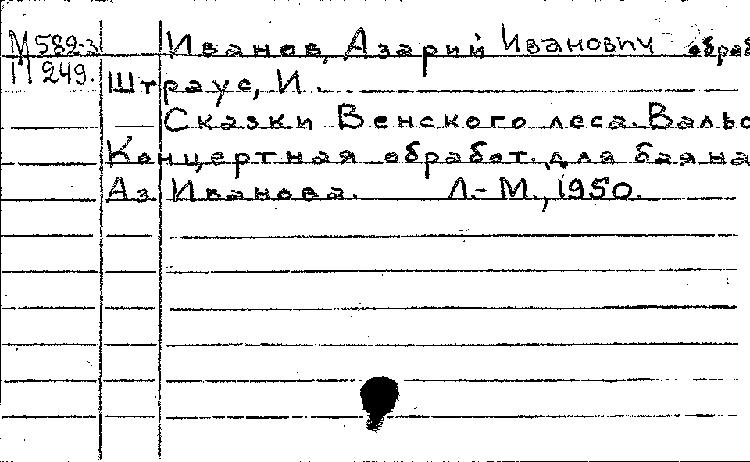 М 582-3 Иванов, Азарий Иванович обраб
М 249. Штраус, И.
Сказки Венского леса. Вальс
Концертная обработ. для баяна
Аз. Иванова. Л.-М., 1950.